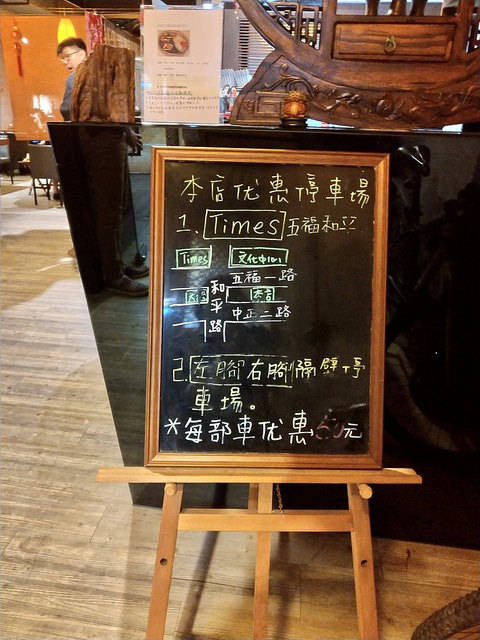 本店优惠停車場
1. Times 五福和平
Times 文化中心
五福一路
和平路
本店
中正二路
2. 左腳右腳隔壁停
車場。
*每部車优惠50元